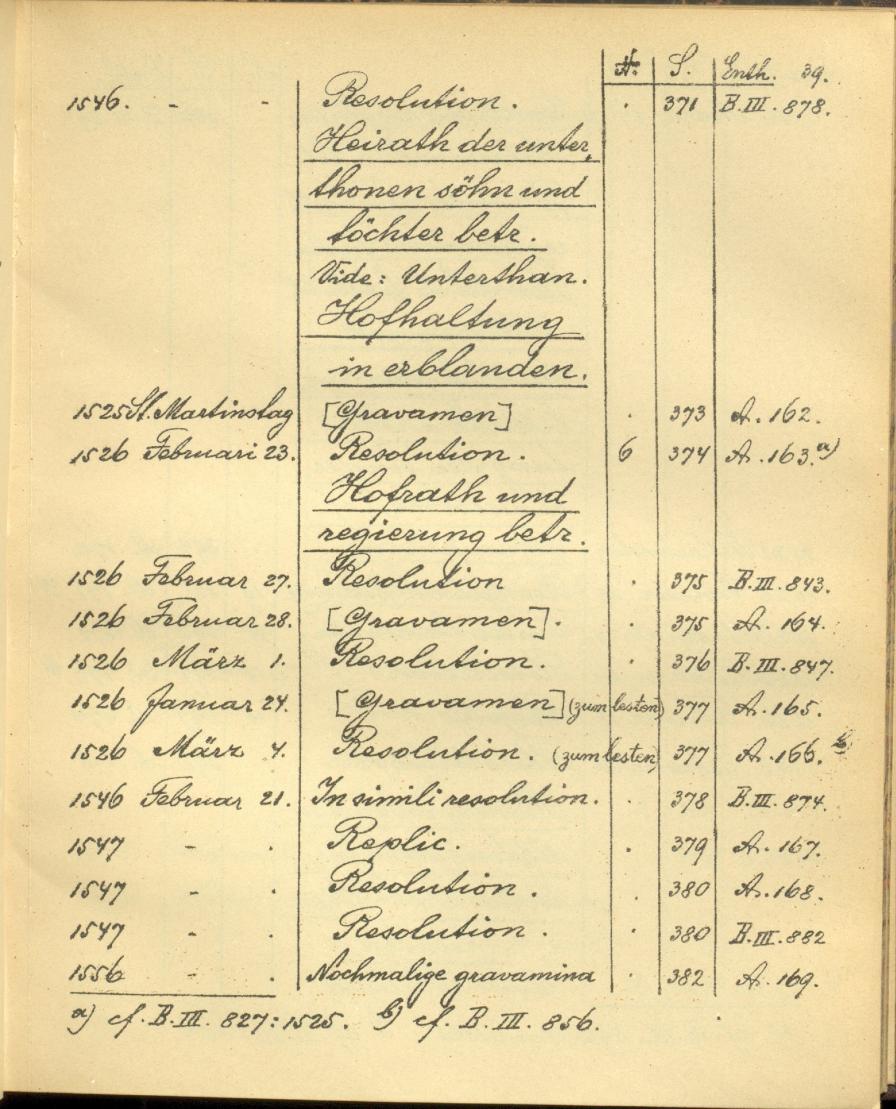 N. S. Enth. 39.
1546. - - Resolution. . 371 B.III.878.
Heirath der unter,
thonen söhn und
töchter betr.
Vide: Unterthan.
Hofhaltung
in erblanden.
1525 St. Martinstag [Gravamen] . 373 A.162.
1526 Februari 23. Resolution. 6 374 A.163.a)
Hofrath und
regierung betr.
1526 Februar 27. Resolution . 375 B.III.843.
1526 Februar 28. [Gravamen]. . 375 A.164.
1526 März 1. Resolution. . 376 B.III.847.
1526 Januar 24. [Gravamen] (zum besten) 377 A.165.
1526 März 4. Resolution. (zum besten) 377 A.166.b)
1546 Februar 21. In simili resolution. . 378 B.III.874.
1547 - . Replic. . 379 A.167.
1547 - . Resolution. . 380 A.168.
1547 - . Resolution. . 380 B.III.882
1556 - . Nochmalige gravamina . 382 A.169.
a) cf. B.III. 827:1525. b) cf. B.III. 856.